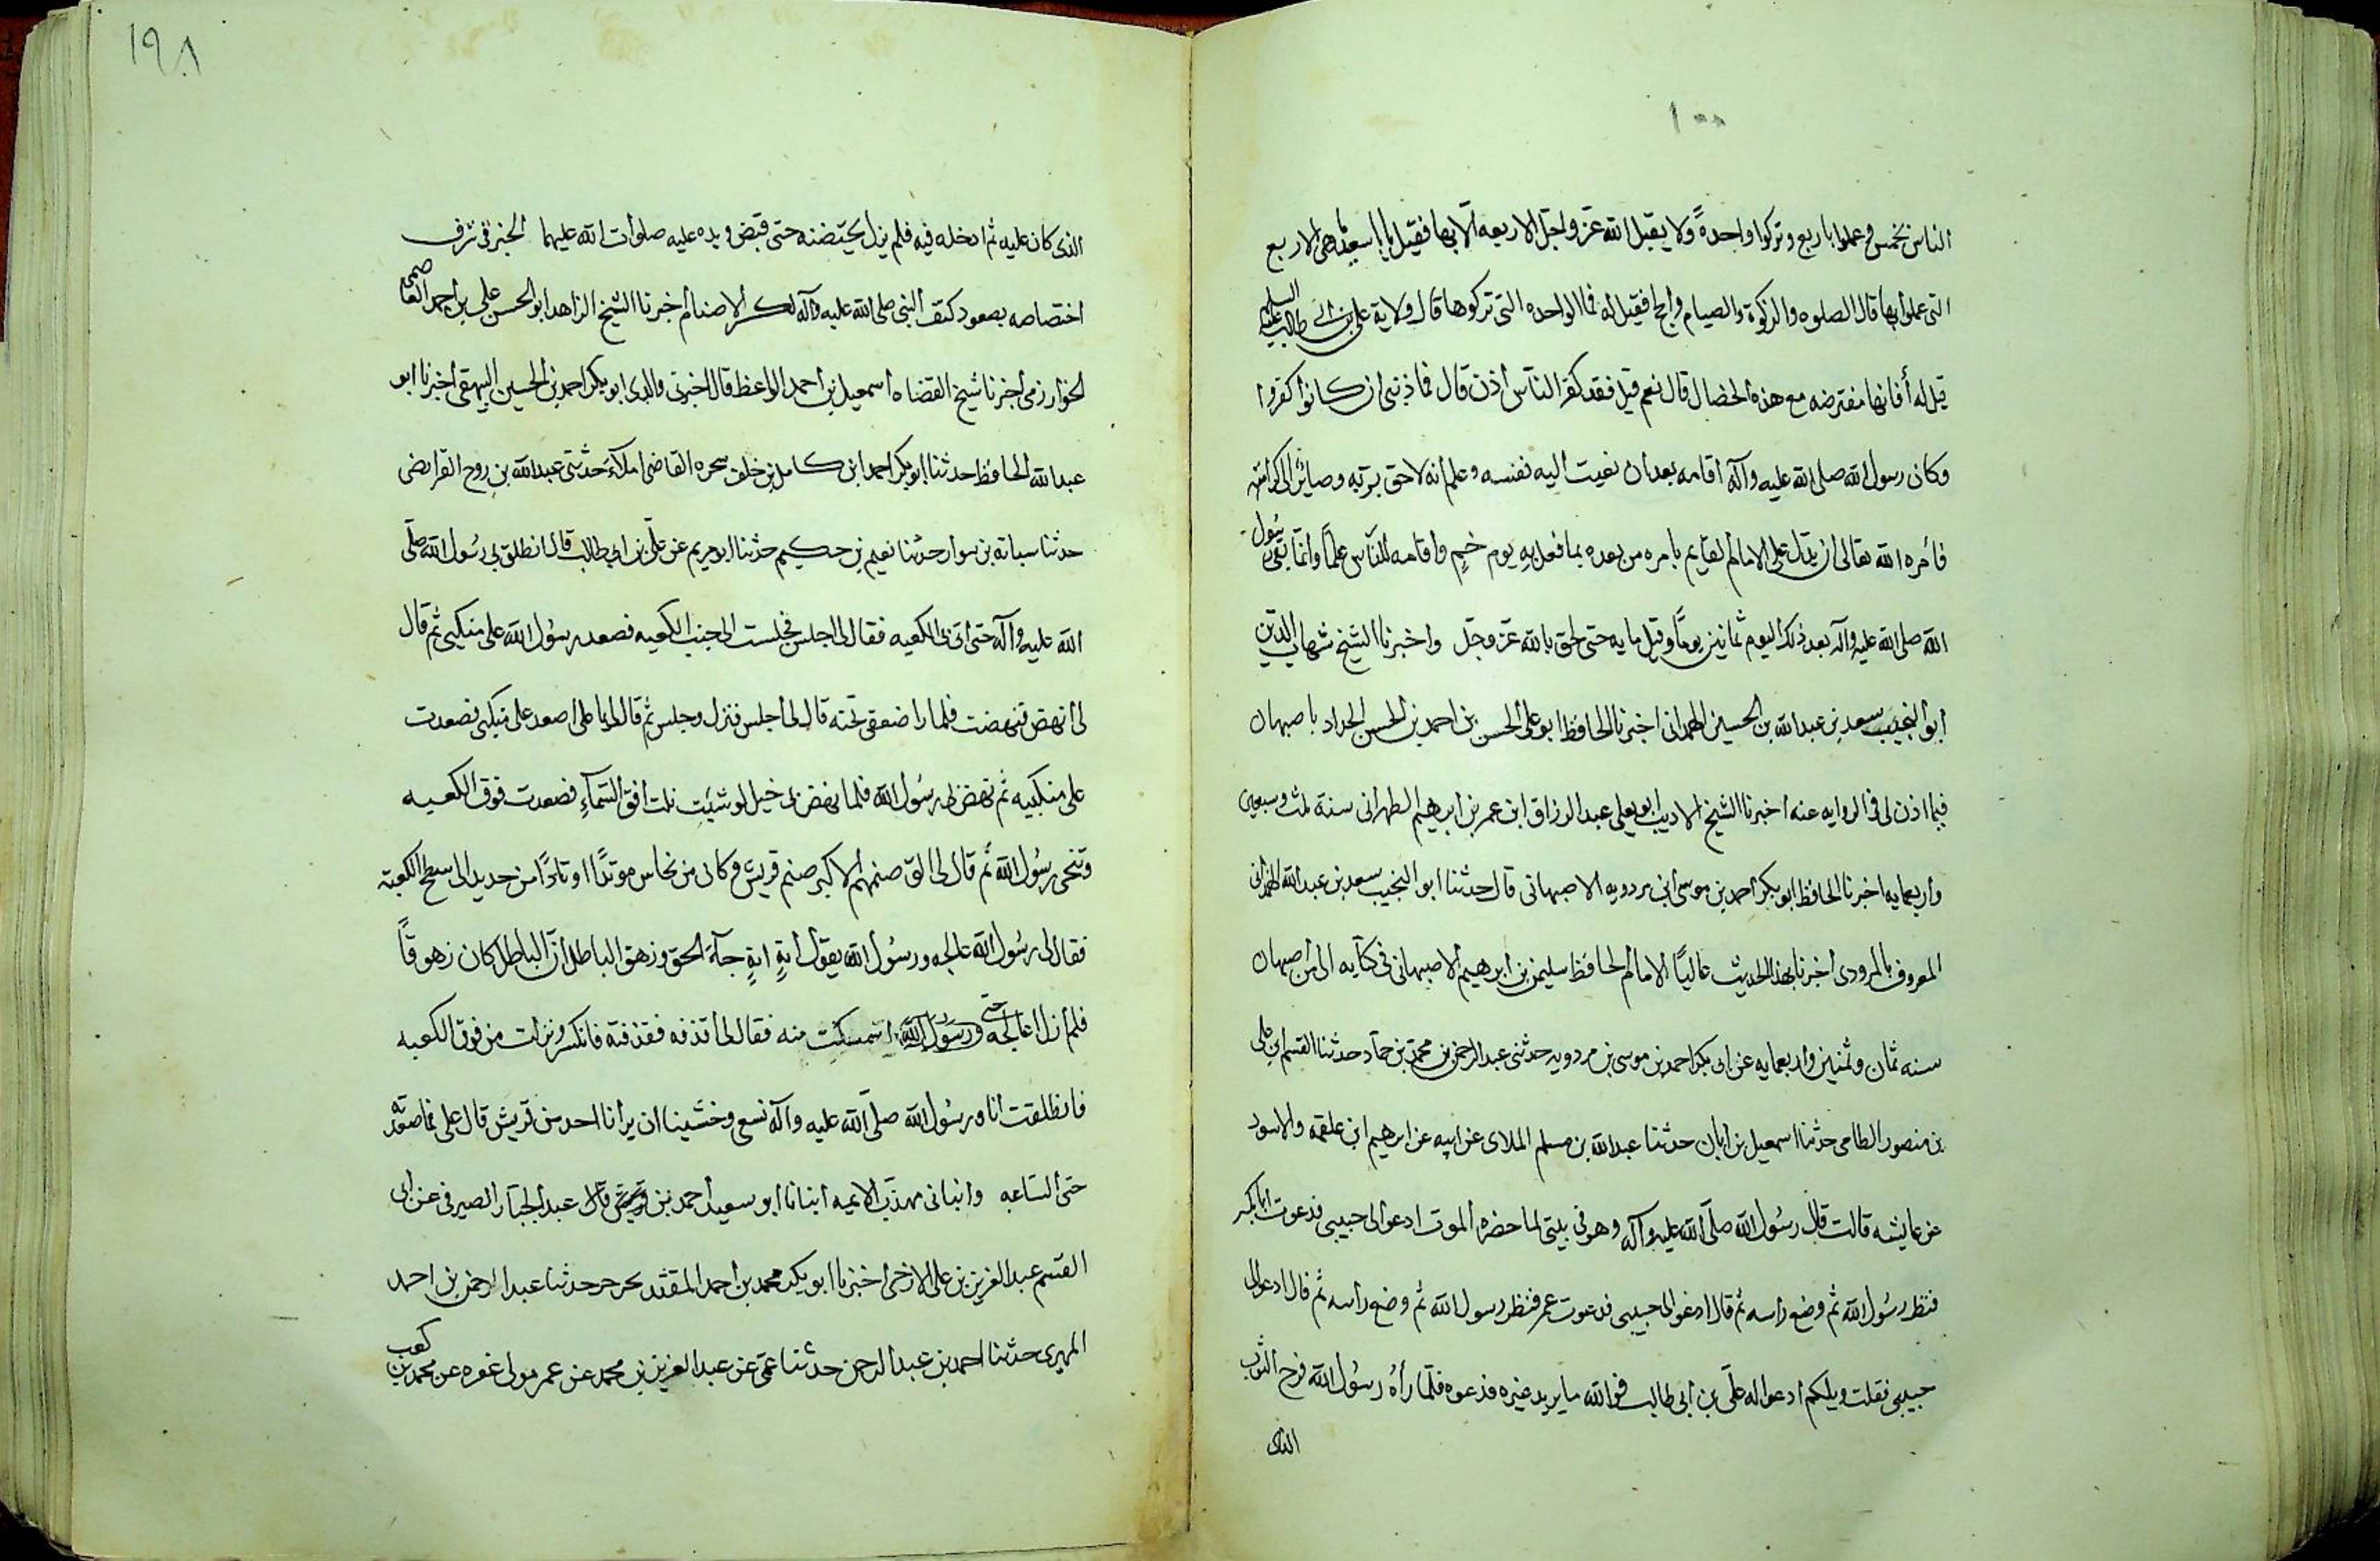 ١٠٠
الناس بخمس فعملوا باربع وتركوا واحدةً ولا يقبل الله عزّ وجلّ الاربعه الّا بها فقيل يا با سعيد فما هى الاربع
التى عملوا بها قال الصلوه والزكوة والصيام والحج فقيل له فما الواحده التى تركوها قال ولاية على بن ابى طالب عليه السلم
قيل له أفانها مفترضه مع هذه الخصال قال نعم قيل فقد كفر الناس اذن قال فما ذنبى ان كانوا كفروا
وكان رسول الله صلى الله عليه وآله أقامه بعد ان نعيت اليه نفسه وعلم انه لاحق بربّه وصائر الى كرامته
فأمره الله تعالى ان يدلّ على الامام القايم بامره من بعده بما فعل به يوم خمٍ واقامه للنّاس علماً وانما بقى رسول
الله صلى الله عليه وآله بعد ذلك اليوم ثمانين يوماً وقيل مايه حتى لحق بالله عزّ وجلّ واخبرنا الشيخ شهاب الدين
ابو النجيب سعد بن عبدالله بن الحسين الهمدانى اخبرنا الحافظ ابو على الحسن بن احمد بن الحسن الحداد باصبهان
فيما اذن لى فى الروايه عنه اخبرنا الشيخ الاديب ابو يعلى عبد الرزاق ابن عمر بن ابرهيم الطهرانى سنة ثلث وسبعين
واربعمايه اخبرنا الحافظ ابو بكر احمد بن موسى ابن مردويه الاصبهانى قال حدثنا ابو النجيب سعد بن عبدالله الهمدانى
المعروف بالمروزى اخبرنا بهذا الحديث عالياً الامام الحافظ سليمن بن ابرهيم الاصبهانى فى كتابه الى من اصبهان
سنه ثمان وثمنين واربعمايه عن ابى بكر احمد بن موسى بن مردويه حدثنى عبد الرحمن بن محمد بن حمّاد حدثنا القسم ابن على
بن منصور الطامى حدثنا اسمعيل بن ابان حدثنا عبدالله بن مسلم الملاى عن ابيه عن ابرهيم ابن علقمه والاسود
عن عايشه قالت قال رسول الله صلّى الله عليه وآله وهو فى بيتى لما حضره الموت ادعوا لى حبيبى فدعوت ابا بكر
فنظر رسول الله ثم وضع راسه ثم قال ادعوا لى حبيبى فدعوت عمر فنظر رسول الله ثم وضع راسه ثم قال ادعوا لى
حبيبى فقلت ويلكم ادعوا له علّى بن ابى طالب فوالله ما يريد غيره فدعوه فلمّا رأهُ رسول الله فرج الثوب
الذى
١٩٨
الذى كان عليه ثم ادخله فيه فلم يزل يحتضنه حتى قبض ويده عليه صلوات الله عليهما الخبر فى شرف
اختصاصه بصعود كتف النبى صلى الله عليه وآله لكسر الاصنام أخبرنا الشيخ الزاهد ابو الحسن على بن احمد العاصمى
الخوارزمى أخبرنا شيخ القضاه اسمعيل بن احمد الواعظ قال اخبرنى والدى ابو بكر احمد بن الحسين البيهقى اخبرنا ابو
عبدالله الحافظ حدثنا ابو بكر احمد ابن كامل بن خلف سحره القاضى املآءً حدثنى عبدالله بن روح الفرايضى
حدثنا سبابة بن سوار حدثنا نعيم بن حكيم حدثنا ابو مريم عن علّى بن ابى طالب قال انطلق بى رسول الله صلّى
الله عليه وآله حتى اتى بى الكعبه فقال لى اجلس فجلست الى جنب الكعبه فصعد رسول الله على منكبى ثم قال
لى انهض فنهضت فلما را ضعفى تحته قال لى اجلس فنزل وجلس ثم قال لى يا على اصعد على منكبى فصعدت
على منكبيه ثم نهض بى رسول الله فلما نهض بى خيل لو شئت نلت افق السمآءِ فصعدت فوق الكعبه
وتنحى رسول الله ثم قال لى الق صنمهم الاكبر صنم قريش وكان من نحاس موتداً اوتاداً من حديد الى سطح الكعبة
فقال لى رسول الله عالجه ورسول الله يقول ايةٍ ايةٍ جآء الحق وزهق الباطل انّ الباطل كان زهوقاً
فلم ازل اعالجه ورسول الله حتى استمسكت منه فقال لى أقذفه فقذفته فانكسر ونزلت من فوق الكعبه
فانطلقت انا ورسول الله صلّى الله عليه وآله نسعى وخشينا ان يرانا احد من قريش قال على فما صعدته
حتى السّاعه وانبانى مهذّب الايمه انبانا ابو سعيد احمد بن عبد الجبّار الصيرفى عن ابى
القسم عبد العزيز بن على الازجى اخبرنا ابو بكر محمد بن احمد المفيد بحرجرا حدثنا عبد الرحمن بن احمد
المهرى حدثنا احمد بن عبد الرحمن حدثنا عمّى عن عبد العزيز بن محمد عن عمر مولى غفره عن محمد بن كعب